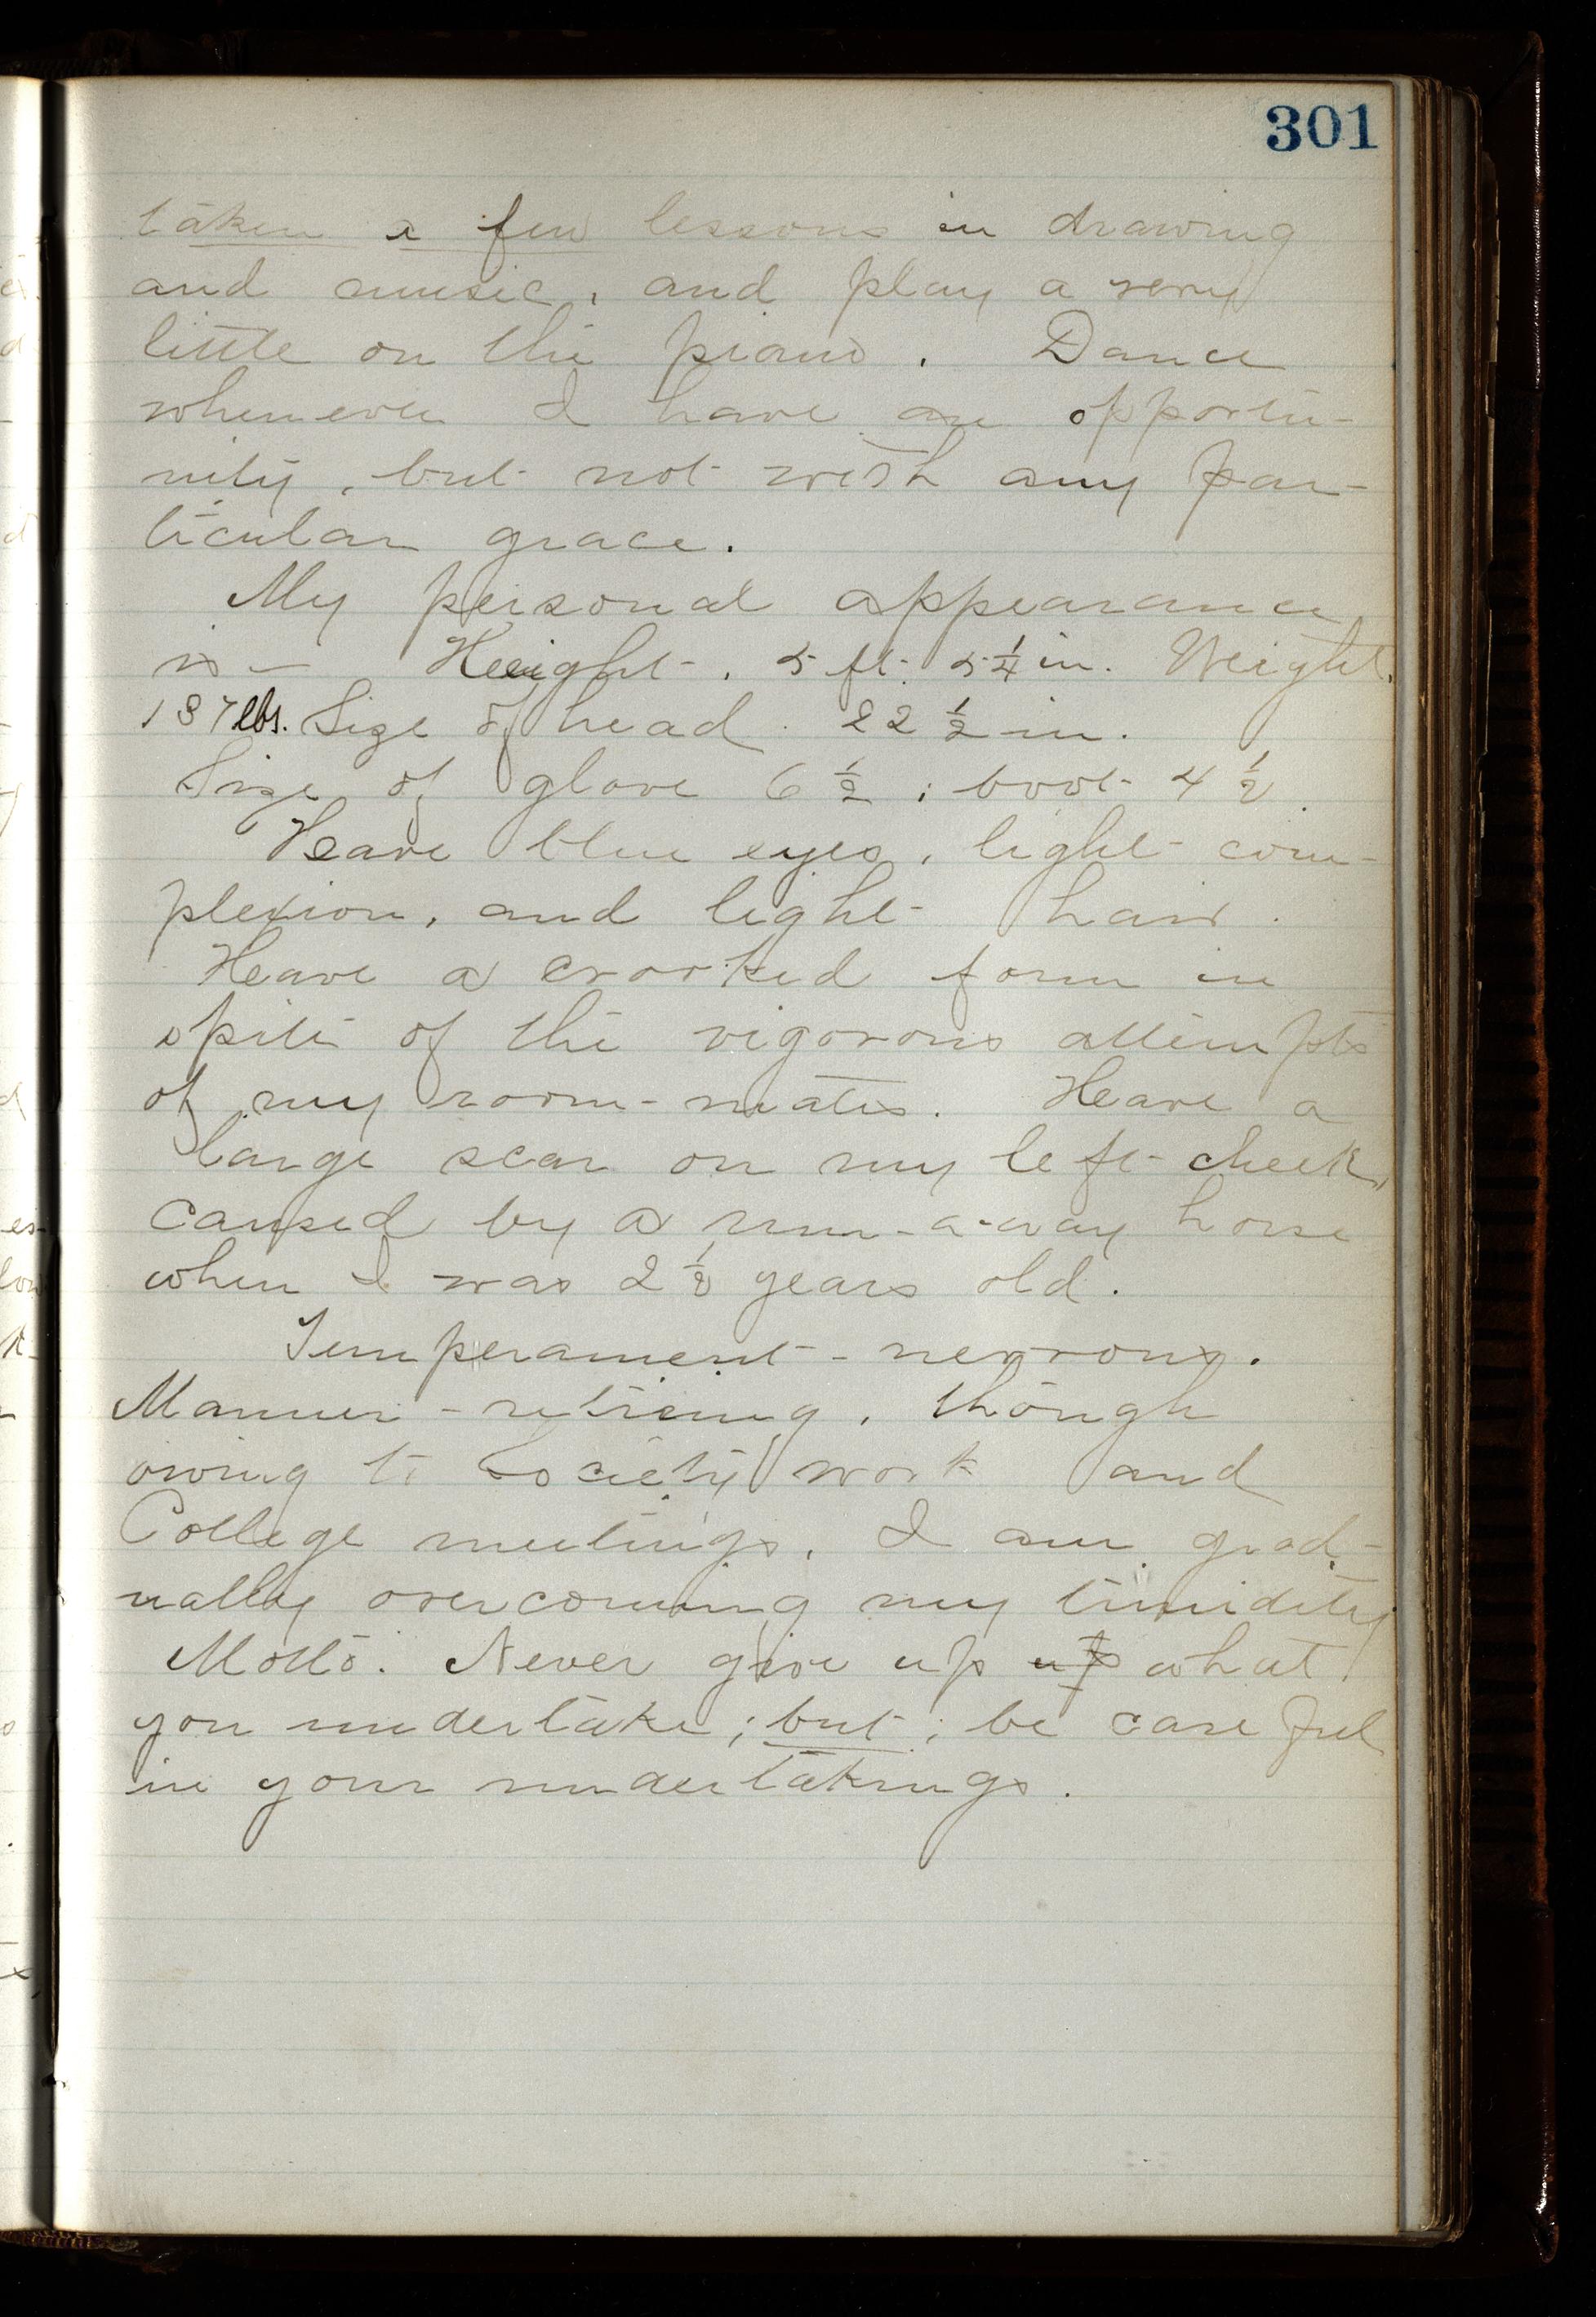 301
taken a few lessons in drawing
and music, and play a very
little on the piano. Dance
whenever I have an opportu-
nity, but not with any par-
ticular grace.
My personal appearance
is — Height, 5 ft. 5 1/4 in. Weight,
137 lbs. Size of head. 22 1/2 in.
Size of glove 6 1/2; boot 4 1/2.
Have blue eyes, light com-
plexion, and light hair.
Have a crooked form in
spite of the vigorous attempts
of my room-mates. Have a
large scar on my left cheek,
caused by a run-a-way horse
when I was 2 1/2 years old.
Temperament - nervous.
Manner - retiring, though
owing to Society work and
College meetings, I am grad-
ually overcoming my timidity
Motto: Never give up up what
you undertake; but; be careful
in your undertakings.